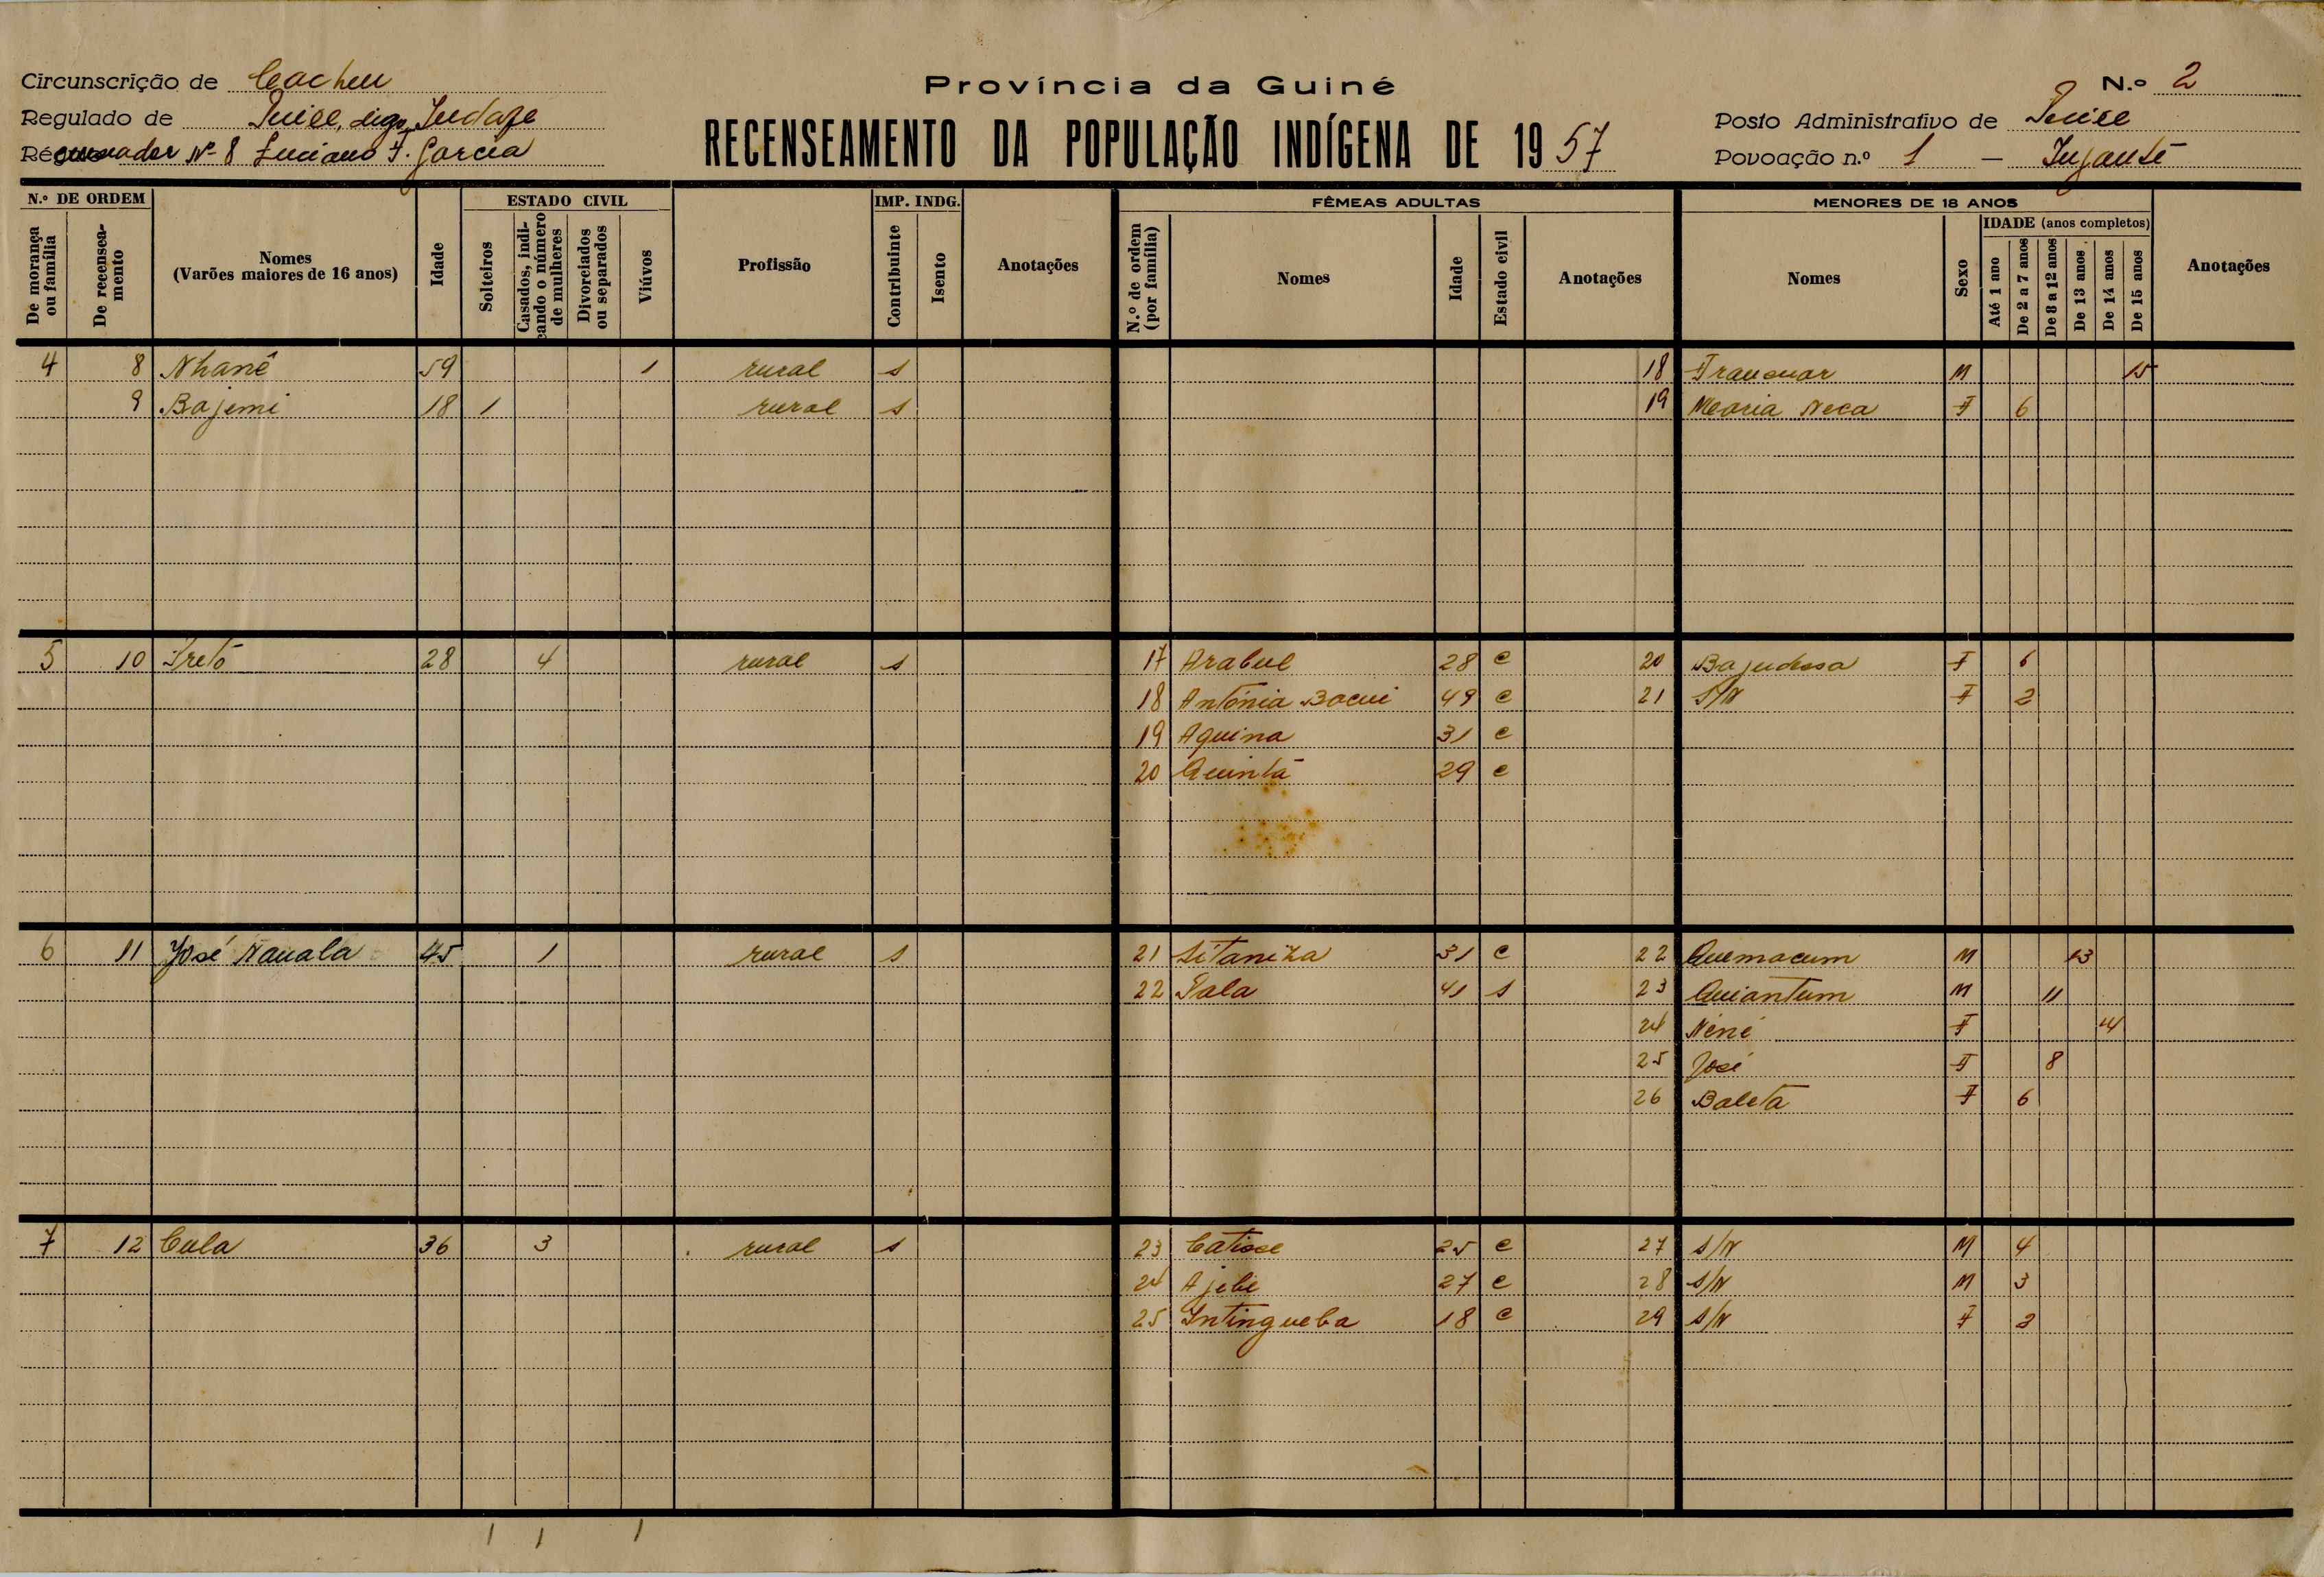 Circunscrição de Cacheu
Província da Guiné
N.º 2
Regulado de digo
RECENSEAMENTO DA POPULAÇÃO INDÍGENA DE 1957
Posto Administrativo de
Recenseador Nº 8 Luciano F. Garcia
Povoação n.º 1 —
N.º DE ORDEM
De morança ou família
De recenseamento
Nomes
(Varões maiores de 16 anos)
Idade
ESTADO CIVIL
Solteiros
Casados, indicando o número de mulheres
Divorciados ou separados
Viúvos
Profissão
IMP. INDG.
Contribuinte
Isento
Anotações
FÊMEAS ADULTAS
N.º de ordem (por família)
Nomes
Idade
Estado civil
Anotações
MENORES DE 18 ANOS
Nomes
Sexo
IDADE (anos completos)
Até 1 ano
De 2 a 7 anos
De 8 a 12 anos
De 13 anos
De 14 anos
De 15 anos
Anotações
4 8 Nhanê 59 1 rural s 18 M 15
9 Bajemi 18 1 rural s 19 Maria Neca F 6
5 10 28 4 rural s 17 Arabul 28 c 20 F 6
18 Antónia Bacui 49 c 21 S/N F 2
19 Aquina 31 c
20 Quintã 29 c
6 11 José Nauala 45 1 rural s 21 31 c 22 Quemacum M 13
22 41 s 23 Quiantum M 11
24 Nené F 14
25 José F 8
26 Baletã F 6
7 12 Cula 36 3 rural s 23 25 c 27 S/N M 4
24 27 c 28 S/N M 3
25 Intingueba 18 c 29 S/N F 2
1 1 1